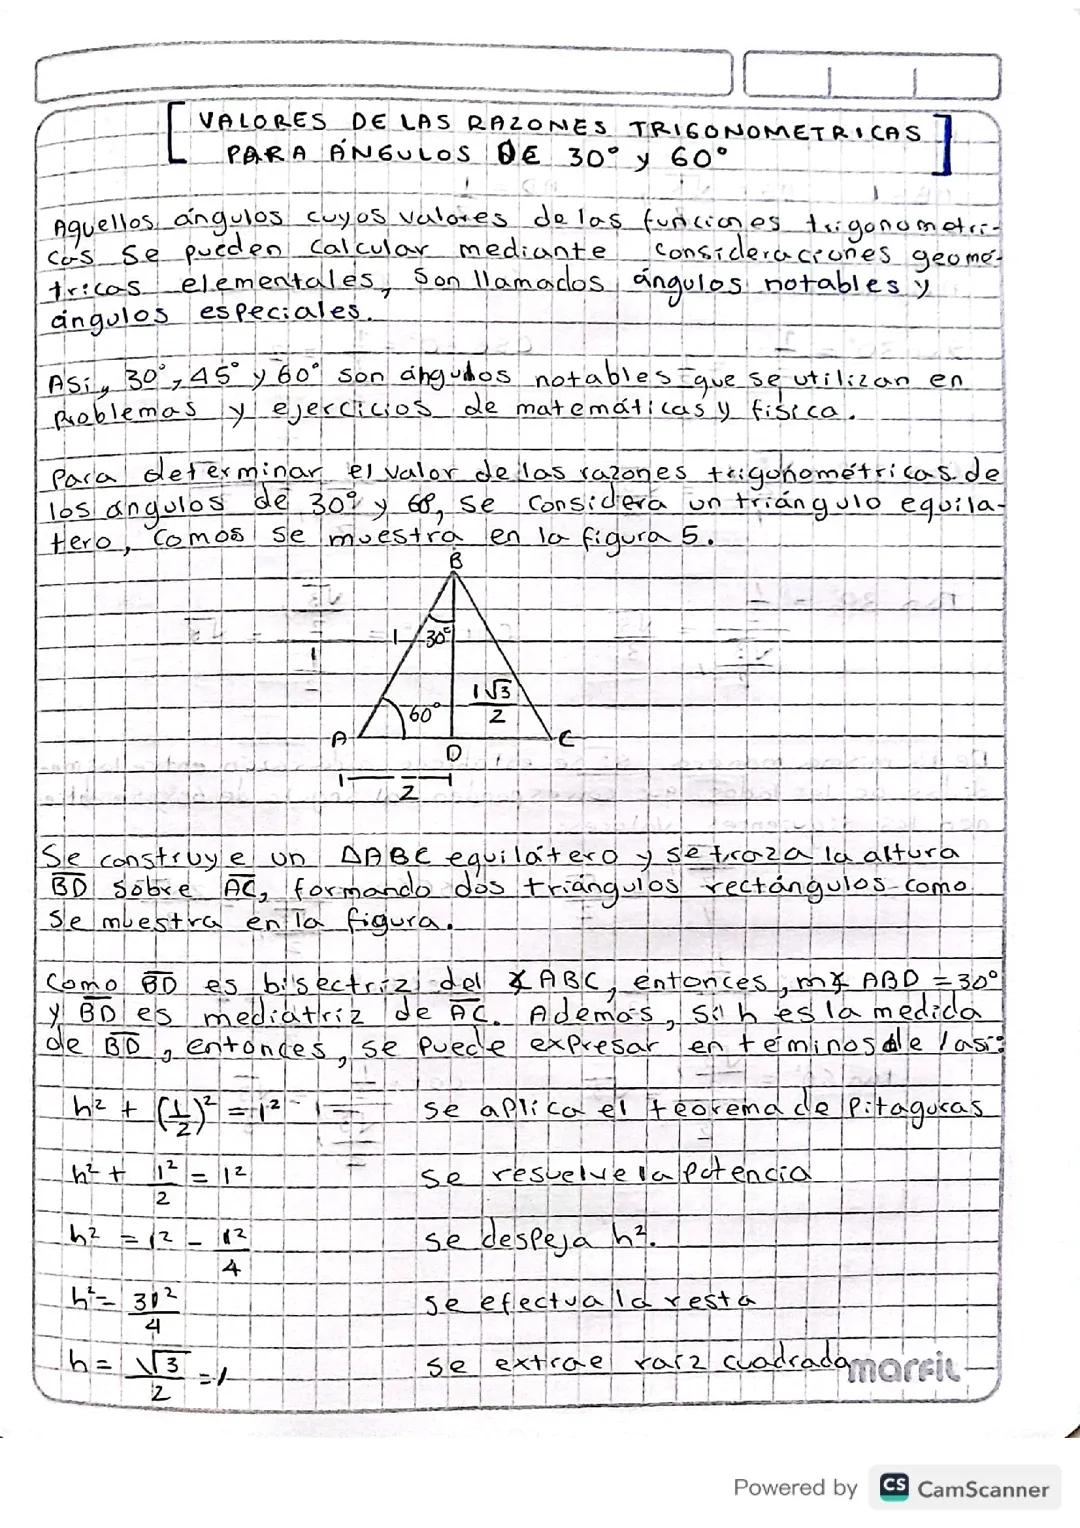 VALORES DE LAS RAZONES TRIGONOMETRICAS
PARA ÁNGULOS DE 30° y 60°
Aquellos ángulos cuyos valores de las funciones trigonometri-
cas se pueden calcular mediante consideraciones geomé-
tricas elementales, son llamados ángulos notables y
ángulos especiales.
Asi, 30°, 45° y 60° son ángulos notables que se utilizan en
problemas y ejercicios de matemáticas y física.
Para determinar el valor de las razones trigonométricas de
los ángulos de 30° y 60, se considera un triángulo equila-
tero, comos se muestra en la figura 5.
B
1 30°
1√3
60° 2
A C
D
2
Se construye un ΔABC equilátero y se traza la altura
BD sobre AC, formando dos triángulos rectángulos como
se muestra en la figura.
Como BD es bisectriz del ∡ABC, entonces, m∡ ABD = 30°
y BD es mediatriz de AC. Además, si h es la medida
de BD, entonces, se puede expresar en téminos de l asi:
h² + (1/2)² = 1² se aplica el teorema de Pitagoras
h² + 1²/2 = 1² se resuelve la potencia
h² = 1² - 1²/4 se despeja h².
h² = 31²/4 se efectua la resta
h = √3/2 = 1 se extrae raiz cuadrada
marfil
Powered by CS CamScanner